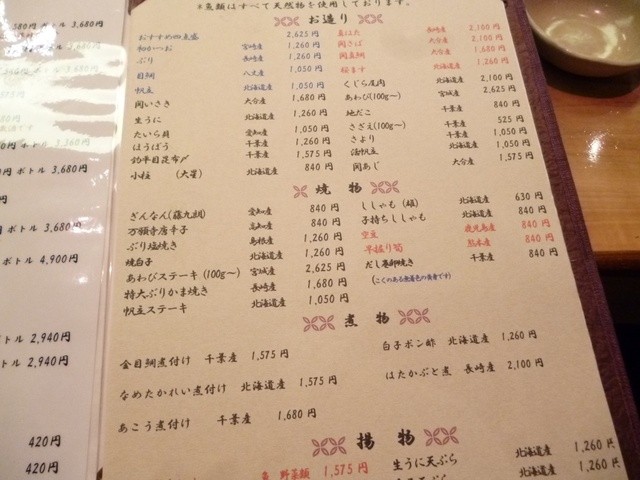 ※魚類はすべて天然物を使用しております。
お造り
おすすめ四点盛 2,625円
初がつお 宮崎産 1,260円
ぶり 長崎産 1,260円
目鯛 八丈産 1,050円
帆立 北海道産 1,050円
関いさき 大分産 1,680円
生うに 北海道産 1,260円
たいら貝 愛知産 1,050円
ほうぼう 千葉産 1,260円
釣平目昆布〆 千葉産 1,575円
小柱 (大星) 北海道産 840円
長崎産 2,100円
関さば 大分産 2,100円
関真鯛 大分産 1,680円
桜ます 北海道産 1,260円
くじら尾肉 2,100円
あわび(100g〜) 宮城産 2,625円
地だこ 千葉産 840円
さざえ(100g〜) 千葉産 525円
さより 千葉産 1,050円
活帆立 北海道産 1,050円
関あじ 大分産 1,575円
焼物
ぎんなん(藤九朗) 愛知産 840円
万願寺唐辛子 高知産 840円
ぶり塩焼き 島根産 1,260円
焼白子 北海道産 1,260円
あわびステーキ(100g〜) 宮城産 2,625円
特大ぶりかま焼き 長崎産 1,680円
帆立ステーキ 北海道産 1,050円
ししゃも 北海道産 630円
子持ちししゃも 北海道産 840円
空豆 鹿児島産 840円
早掘り筍 熊本産 840円
だし巻卵焼き 千葉産 840円
煮物
金目鯛煮付け 千葉産 1,575円
なめたかれい煮付け 北海道産 1,575円
あこう煮付け 千葉産 1,680円
白子ポン酢 北海道産 1,260円
はたかぶと煮 長崎産 2,100円
揚物
野菜類 1,575円
生うに天ぷら 北海道産 1,260円
北海道産 1,260円
ボトル 3,680円
ボトル 3,680円
ボトル 3,680円
ボトル 3,680円
ボトル 4,900円
トル 2,940円
トル 2,940円
420円
420円